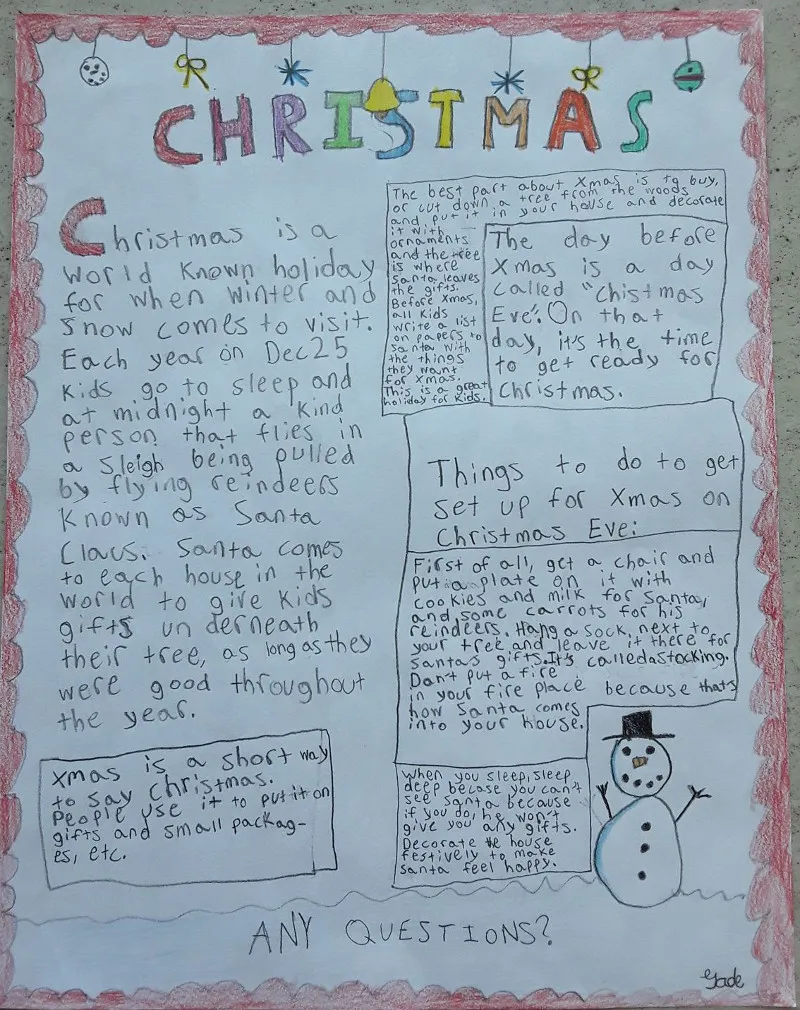 CHRISTMAS
Christmas is a
world known holiday
for when winter and
snow comes to visit.
Each year on Dec 25
kids go to sleep and
at midnight a kind
person that flies in
a sleigh being pulled
by flying reindeers
known as Santa
Claus. Santa comes
to each house in the
world to give kids
gifts un derneath
their tree, as long as they
were good throughout
the year.
Xmas is a short way
to say Christmas.
People use it to put it on
gifts and small packag-
es, etc.
The best part about Xmas is to buy,
or cut down a tree from the woods
and put it in your house and decorate
it with
ornaments
and the tree
is where
Santa leaves
the gifts.
Before Xmas,
all kids
write a list
on papers to
Santa with
the things
they want
for Xmas.
This is a great
holiday for kids.
The day before
Xmas is a day
called "Chistmas
Eve". On that
day, it's the time
to get ready for
Christmas.
Things to do to get
set up for Xmas on
Christmas Eve:
First of all, get a chair and
put a plate on it with
cookies and milk for Santa,
and some carrots for his
reindeers. Hang a sock, next to
your tree and leave it there for
Santa's gifts. It's called a Stocking.
Don't put a fire
in your fire place because that's
how Santa comes
into your house.
When you sleep, sleep
deep becase you can't
see Santa because
if you do, he won't
give you any gifts.
Decorate the house
festively to make
Santa feel happy.
ANY QUESTIONS?